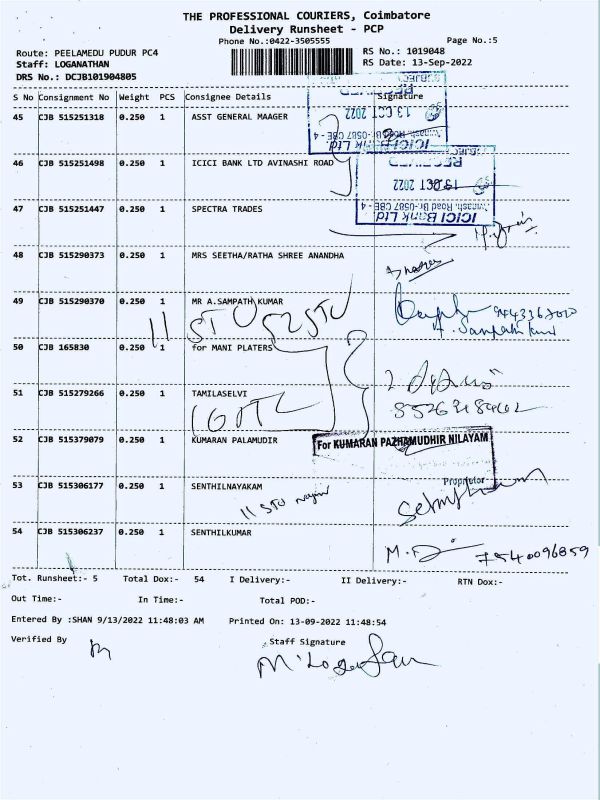 THE PROFESSIONAL COURIERS, Coimbatore
Delivery Runsheet - PCP
Phone No.:0422-3505555
Page No.:5
Route: PEELAMEDU PUDUR PC4
RS No.: 1019048
Staff: LOGANATHAN
RS Date: 13-Sep-2022
DRS No.: DCJB101904805
S No Consignment No Weight PCS Consignee Details Signature
45 CJB 515251318 0.250 1 ASST GENERAL MAAGER
RECEIVED
13 OCT 2022
Avinash. Road Br.-0587 CBE - 4
ICICI Bank Ltd
46 CJB 515251498 0.250 1 ICICI BANK LTD AVINASHI ROAD
RECEIVED
13 OCT 2022
Avinash. Road Br.-0587 CBE - 4
ICICI Bank Ltd
47 CJB 515251447 0.250 1 SPECTRA TRADES
48 CJB 515290373 0.250 1 MRS SEETHA/RATHA SHREE ANANDHA
49 CJB 515290370 0.250 1 MR A.SAMPATH KUMAR
A. Sampath Kumar
11 STU 52 STU
50 CJB 165830 0.250 1 for MANI PLATERS
51 CJB 515279266 0.250 1 TAMILASELVI
52 CJB 515379079 0.250 1 KUMARAN PALAMUDIR
For KUMARAN PAZHAMUDHIR NILAYAM
Proprietor
53 CJB 515306177 0.250 1 SENTHILNAYAKAM
11 STU
54 CJB 515306237 0.250 1 SENTHILKUMAR
7540096859
Tot. Runsheet:- 5 Total Dox:- 54 I Delivery:- II Delivery:- RTN Dox:-
Out Time:- In Time:- Total POD:-
Entered By :SHAN 9/13/2022 11:48:03 AM Printed On: 13-09-2022 11:48:54
Verified By
Staff Signature